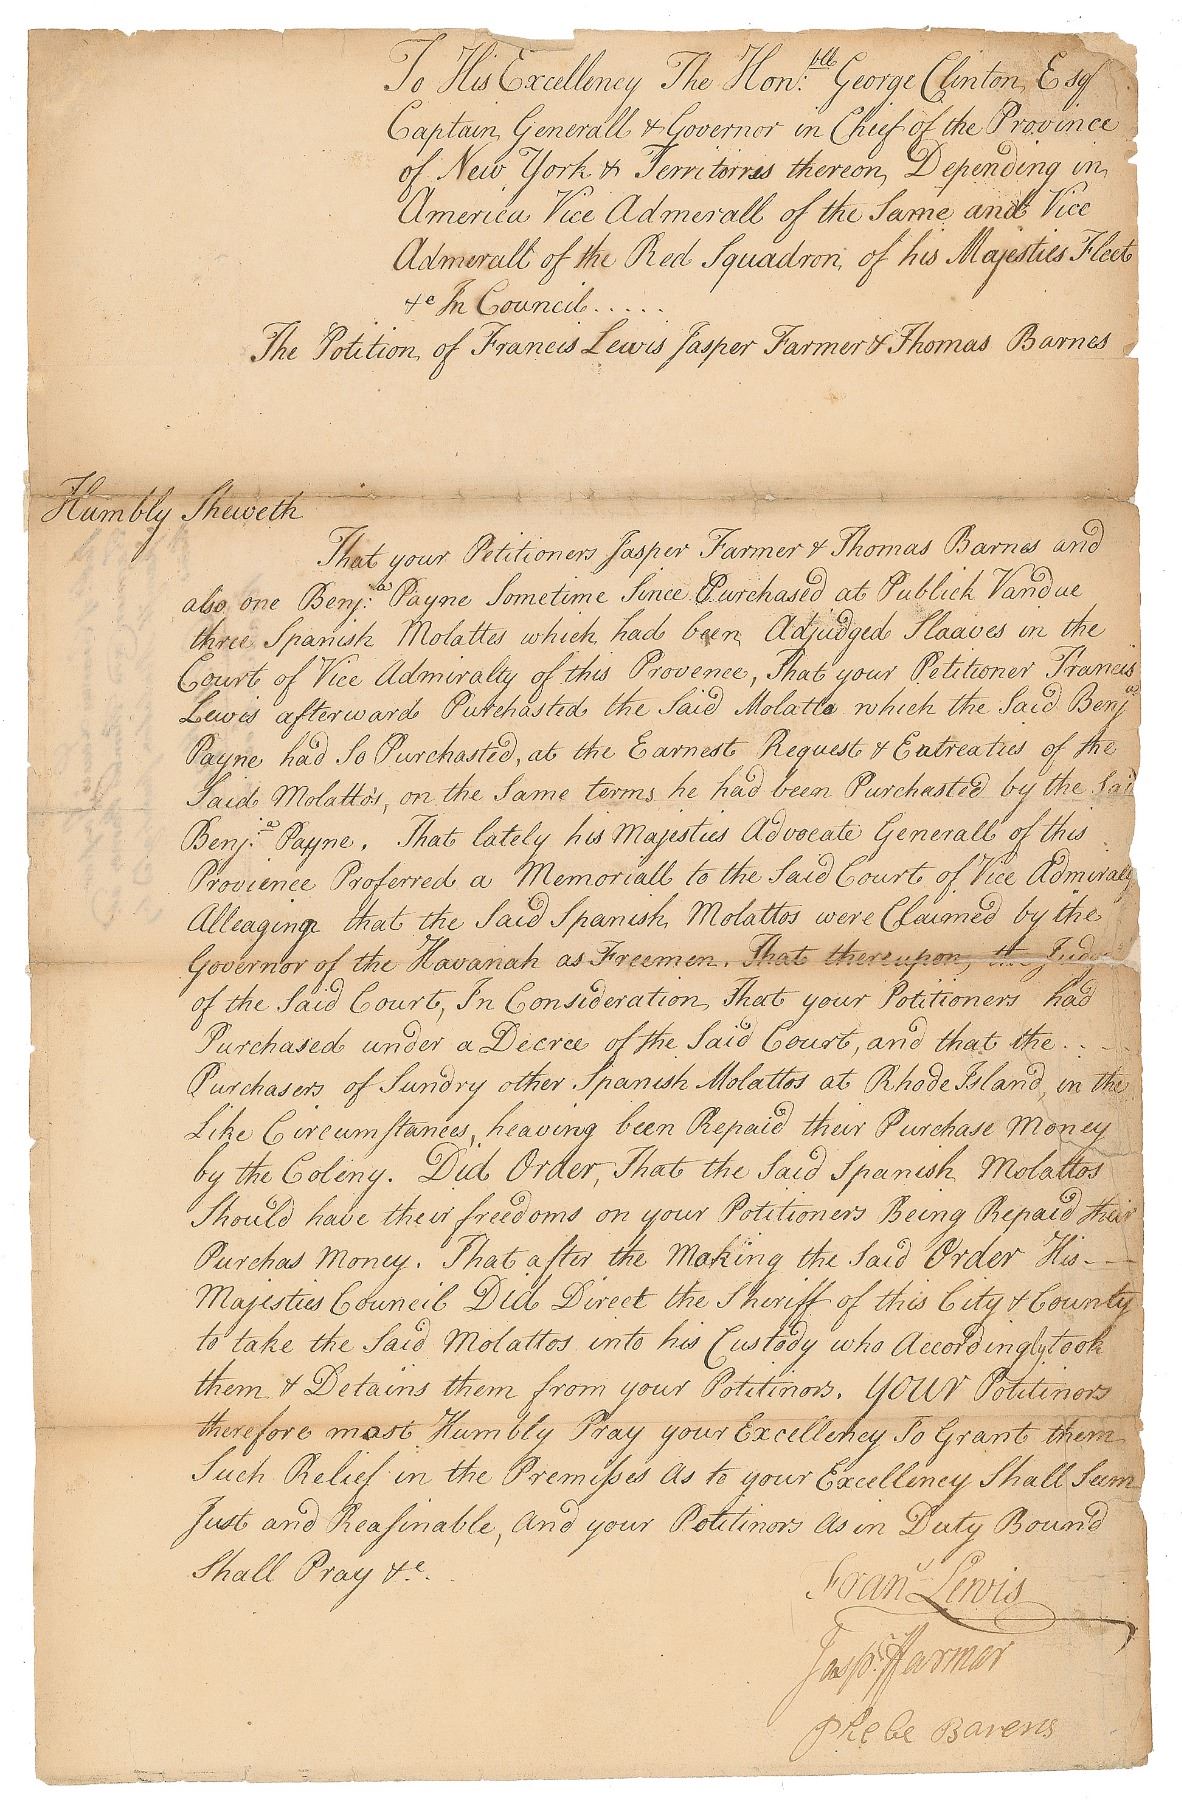 To His Excellency The Hon:ble George Clinton Esqr
Captain Generall & Governor in Chief of the Province
of New York & Territorres thereon Depending in
America Vice Admerall of the Same and Vice
Admerall of the Red Squadron of his Majesties Fleet
&c In Council.....
The Potition of Francis Lewis Jasper Farmer & Thomas Barnes
Humbly Sheweth
That your Petitioners Jasper Farmer & Thomas Barnes and
also one Benj:a Payne Sometime Since Purchased at Publick Vandue
three Spanish Molattes which had been Adjudged Slaaves in the
Court of Vice Admiralty of this Provence, That your Petitioner Francis
Lewis afterward Purchasted the Said Molatto which the Said Benja
Payne had So Purchasted, at the Earnest Request & Entreaties of the
Said Molattos, on the Same terms he had been Purchasted by the Said
Benj:a Payne. That lately his Majesties Advocate Generall of this
Provience Proferred a Memoriall to the Said Court of Vice Admiralty
Alleaging that the Said Spanish Molattos were Claimed by the
Governor of the Havanah as Freemen. That thereupon, the Judge
of the Said Court, In Consideration That your Potitioners had
Purchased under a Decree of the Said Court, and that the ...
Purchasers of Sundry other Spanish Molattos at Rhode Island, in the
Like Circumstances, heaving been Repaid their Purchase Money
by the Coleny. Did Order, That the Said Spanish Molattos
Should have their freedoms on your Potitioners Being Repaid their
Purchas Money. That after the Making the Said Order His --
Majesties Council Did Direct the Sheriff of this City & County
to take the Said Molattos into his Custody who Accordingly took
them & Detains them from your Potitinors. Your Potitinors
therefore most Humbly Pray your Excellency To Grant them
Such Relief in the Premisses as to your Excellency Shall Seem
Just and Reasinable, And your Potitinors As in Duty Bound
Shall Pray &c.
Frans Lewis
Jaspr Farmar
Phebe Barens